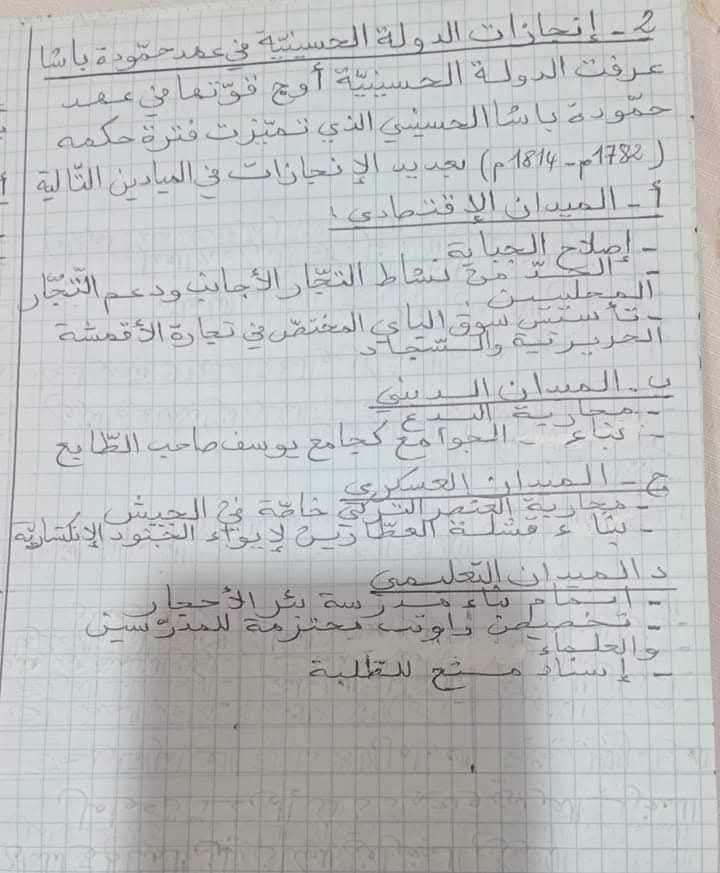 2- إنجازات الدولة الحسينيّة في عهد حمّودة باشا
عرفت الدولة الحسينيّة أوج قوّتها في عهد
حمّودة باشا الحسيني الذي تميّزت فترة حكمه
(1782م-1814م) بعديد الإنجازات في الميادين التّالية
أ- الميدان الإقتصادي:
- إصلاح الجباية
- الحدّ من نشاط التجّار الأجانب ودعم التّجّار
المحليين.
- تأسيس سوق الباي المختصّ في تجارة الأقمشة
الحريرية والسّجاد
ب- الميدان الديني
- محاربة البدع
- بناء الجوامع كجامع يوسف صاحب الطّابع
ج- الميدان العسكري
- محاربة العنصر التركي خاصّة في الجيش
- بناء قشلة العطّارين لإيواء الجنود الإنكشاريّة
د الميدان التعليمي
- إتمام بناء مدرسة بئر الأحجار
- تخصيص رواتب محترمة للمدرّسين
والعلماء
- إسناد منح للطلبة